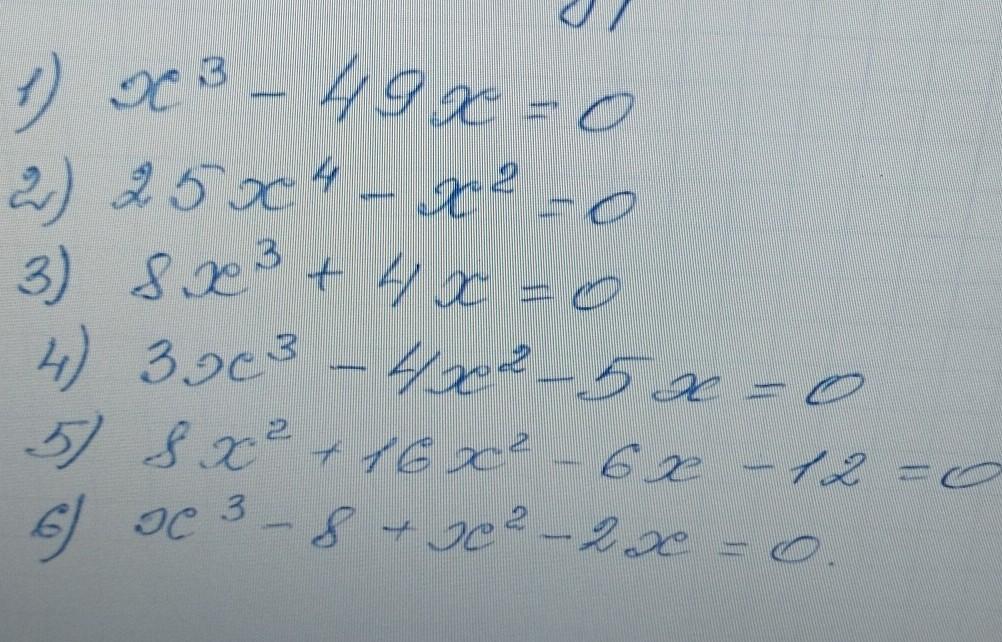 1) x³ - 49x = 0
2) 25x⁴ - x² = 0
3) 8x³ + 4x = 0
4) 3x³ - 4x² - 5x = 0
5) 8x² + 16x² - 6x - 12 = 0
6) x³ - 8 + x² - 2x = 0.